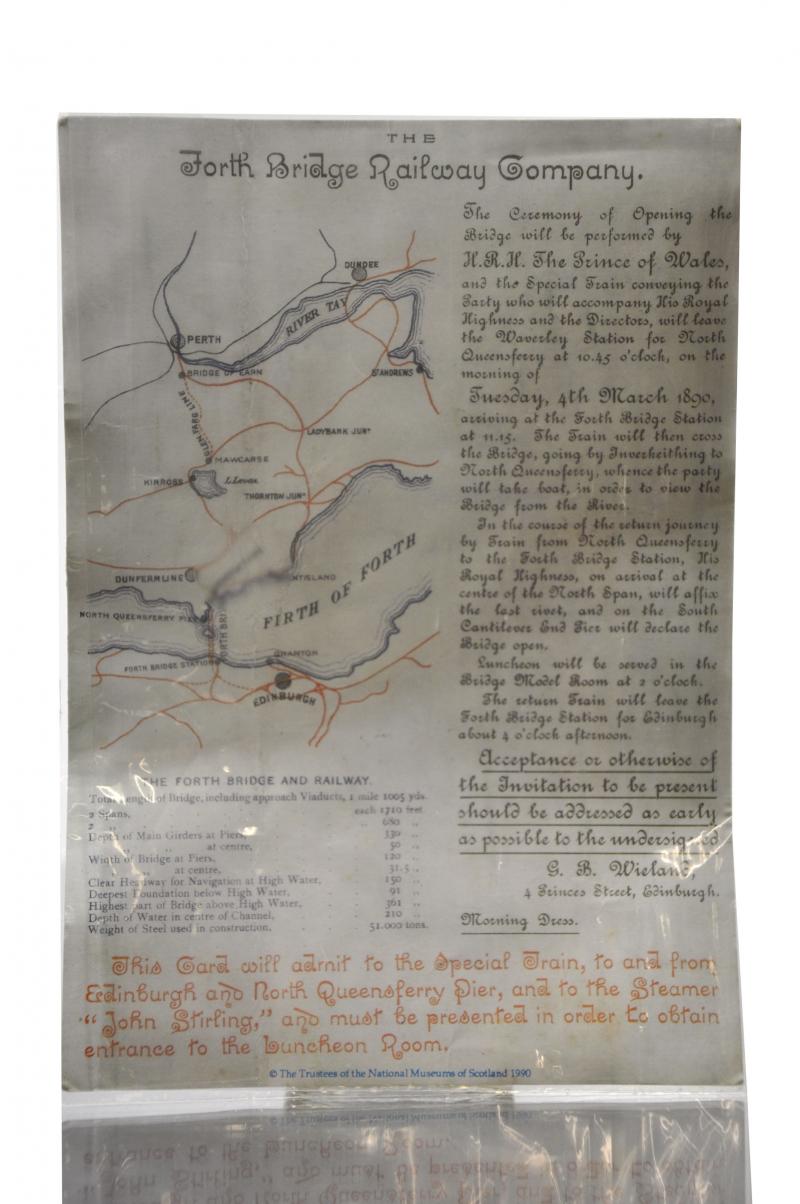 THE
Forth Bridge Railway Company.
The Ceremony of Opening the
Bridge will be performed by
H.R.H. The Prince of Wales,
and the Special Train conveying the
Party who will accompany His Royal
Highness and the Directors, will leave
the Waverley Station for North
Queensferry at 10.45 o'clock, on the
morning of
Tuesday, 4th March 1890,
arriving at the Forth Bridge Station
at 11.15. The Train will then cross
the Bridge, going by Inverkeithing to
North Queensferry, whence the party
will take boat, in order to view the
Bridge from the River.
In the course of the return journey
by Train from North Queensferry
to the Forth Bridge Station, His
Royal Highness, on arrival at the
centre of the North Span, will affix
the last rivet, and on the South
Cantilever End Pier will declare the
Bridge open.
Luncheon will be served in the
Bridge Model Room at 2 o'clock.
The return Train will leave the
Forth Bridge Station for Edinburgh
about 4 o'clock afternoon.
Acceptance or otherwise of
the Invitation to be present
should be addressed as early
as possible to the undersigned
G. B. Wieland,
4 Princes Street, Edinburgh.
Morning Dress.
DUNDEE
RIVER TAY
PERTH
BRIDGE OF EARN
ST ANDREWS
GLENFARG LINE
LADYBANK JUNN
MAWCARSE
KINROSS
L. Leven
THORNTON JUNN
DUNFERMLINE
NTISLAND
FIRTH OF FORTH
NORTH QUEENSFERRY PIER
FORTH BRI
FORTH BRIDGE STATION
GRANTON
EDINBURGH
THE FORTH BRIDGE AND RAILWAY.
Total length of Bridge, including approach Viaducts, 1 mile 1005 yds.
2 Spans, each 1710 feet.
2 ,, ,, 680 ,,
Depth of Main Girders at Piers, 330 ,,
,, ,, at centre, 50 ,,
Width of Bridge at Piers, 120 ,,
,, at centre, 31.5 ,,
Clear Headway for Navigation at High Water, 150 ,,
Deepest Foundation below High Water, 91 ,,
Highest part of Bridge above High Water, 361 ,,
Depth of Water in centre of Channel, 210 ,,
Weight of Steel used in construction, 51.000 tons.
This Card will admit to the Special Train, to and from
Edinburgh and North Queensferry Pier, and to the Steamer
"John Stirling," and must be presented in order to obtain
entrance to the Luncheon Room.
© The Trustees of the National Museums of Scotland 1990